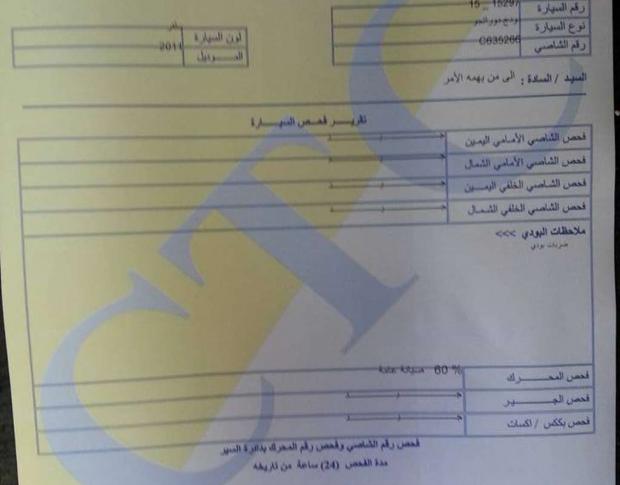 رقم السيارة 15297 _ 15
نوع السيارة دودج دورانجو
رقم الشاصي C635266
لون السيارة
الموديل 2011
السيد / السادة : الى من يهمه الأمر
تقرير فحص السيارة
فحص الشاصي الأمامي اليمين
فحص الشاصي الأمامي الشمال
فحص الشاصي الخلفي اليمين
فحص الشاصي الخلفي الشمال
ملاحظات البودي >>>
ضربات بودي
فحص المحرك 60 % صيانة عامة
فحص الجير
فحص بككس / اكسات
فحص رقم الشاصي وفحص رقم المحرك بدائرة السير
مدة الفحص (24) ساعة من تاريخه
CTC